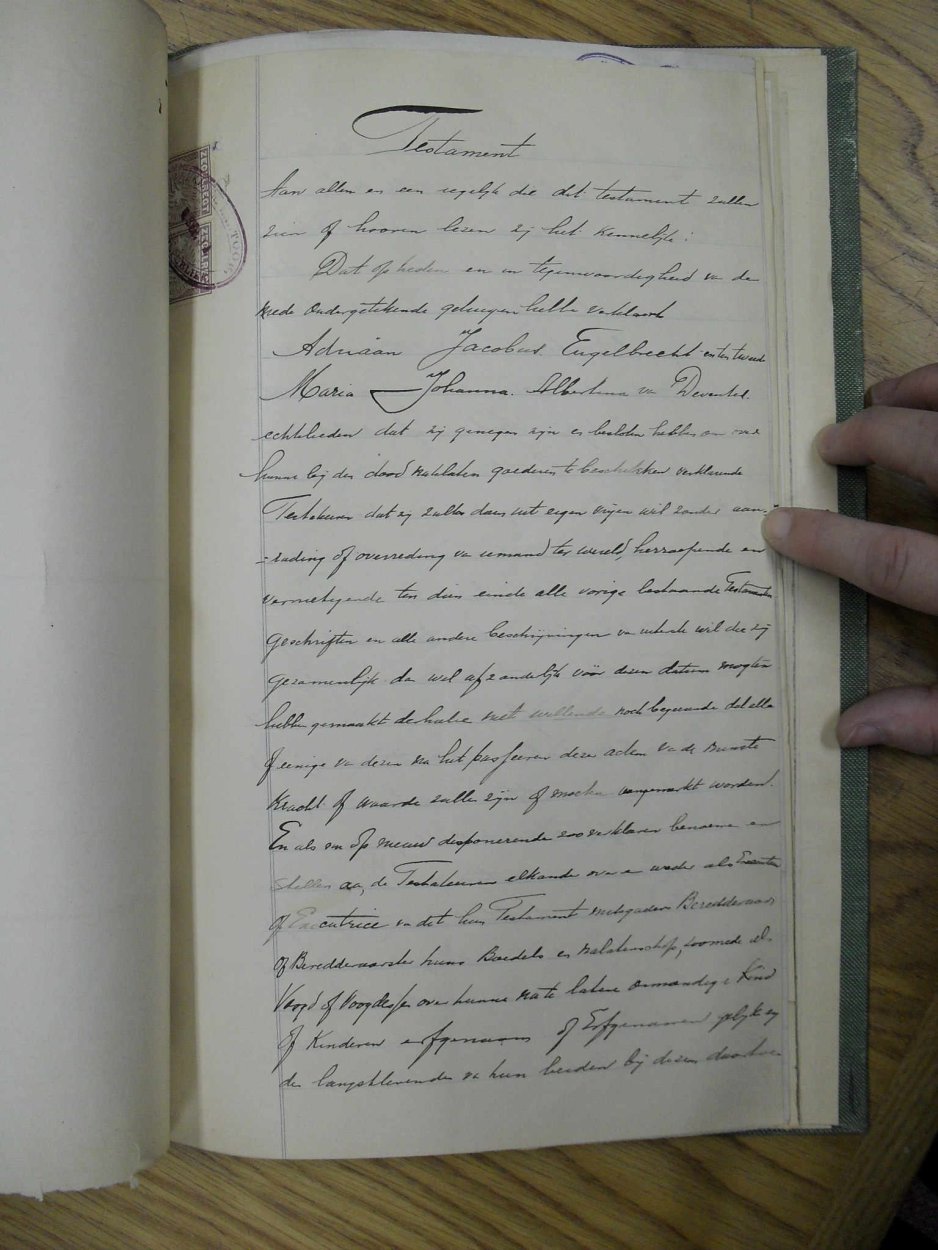 Testament
Aan allen en een iegelijk die dit testament zullen
zien of hooren lezen zij het kennelijk:
Dat op heden en in tegenwoordigheid van de
mede ondergetekende getuigen hebben verklaard
Adriaan Jacobus Engelbrecht en ten tweede
Maria Johanna Albertina van Deventer
echtelieden dat zij genegen zijn en besloten hebben om over
hunne bij den dood natelaten goederen te beschikken verklarende
Testateuren dat zij zulks doen uit eigen vrijen wil zonder aan-
=rading of overreding van iemand ter wereld, herroepende en
vernietigende ten dien einde alle vorige bestaande Testamenten
geschriften en alle andere beschrijvingen van uiterste wil die zij
gezamenlijk dan wel afzonderlijk vóór dezen datum mogten
hebben gemaakt derhalve niet willende noch begeerende dat alle
of eenige van dezen na het passeeren dezer acten van de minste
kracht of waarde zullen zijn of aangemerkt worden.
En als nu op nieuw disponerende zoo verklaren benoemen en
stellen aan de Testateuren elkander over en weder als Executeur
of Executrice van dit hun Testament mitsgaders Beredderaar
of Beredderaarster hunne Boedels en nalatenschap, zoomede als
Voogd of Voogdesse over hunne na te latene onmondige Kind
of Kinderen erfgenaam of Erfgenamen gelijk zij
den langstlevenden van hun beiden bij dezen